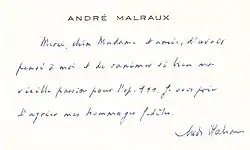 ANDRÉ MALRAUX
Merci, chère Madame et amie, d'avoir
pensé à moi et de ranimer si bien ma
vieille passion pour l'op. 111. Je vous prie
d'agréer mes hommages fidèles.
André Malraux